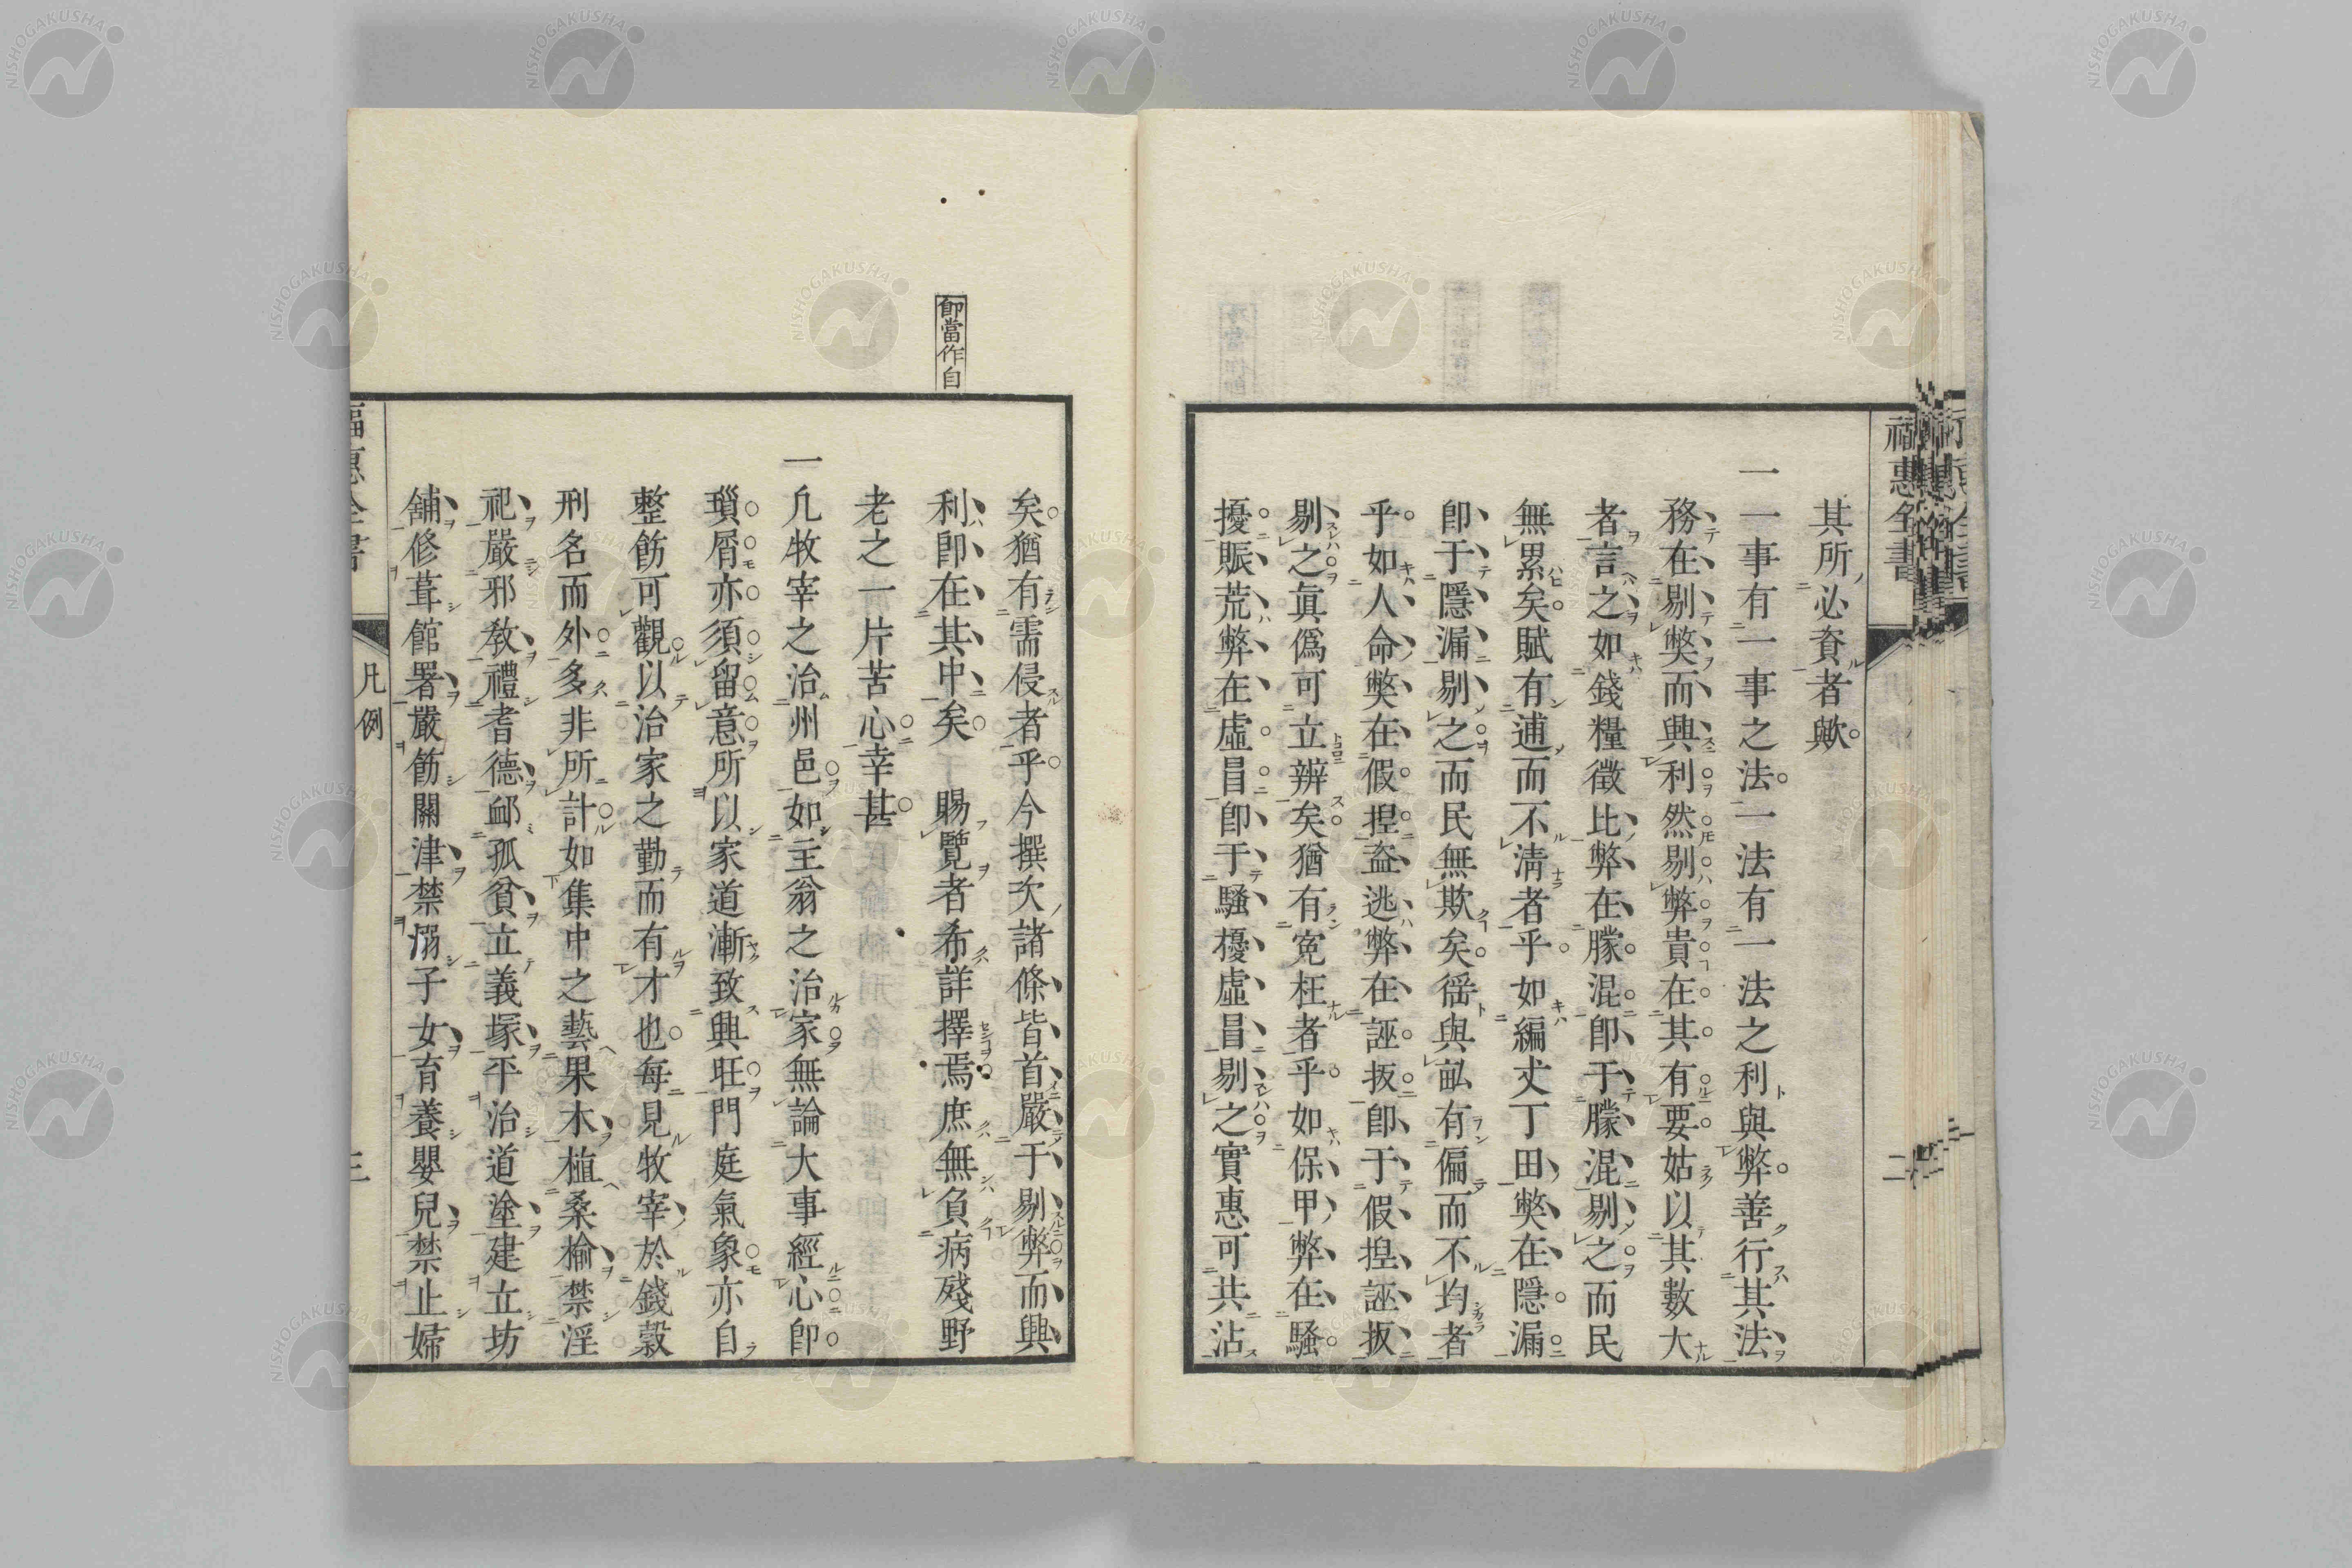 福惠全書
二
其所必資者歟
一一事有一事之法一法有一法之利與弊善行其法
務在剔弊而興利然剔弊貴在其有要姑以其數大
者言之如錢糧徵比弊在朦混卽于朦混剔之而民
無累矣賦有逋而不淸者乎如編丈丁田弊在隱漏
卽于隱漏剔之而民無欺矣徭與畝有偏而不均者
乎如人命弊在假捏盜逃弊在誣扳卽于假捏誣扳
剔之眞僞可立辨矣猶有寃枉者乎如保甲弊在騷
擾賑荒弊在虛冒卽于騷擾虛冒剔之實惠可共沾
矣猶有需侵者乎今撰次諸條皆首嚴于剔弊而興
卽當作自
利卽在其中矣 賜覽者希詳擇焉庶無負病殘野
老之一片苦心幸甚
一凢牧宰之治州邑如主翁之治家無論大事經心卽
瑣屑亦須留意所以家道漸致興旺門庭氣象亦自
整飭可觀以治家之勤而有才也每見牧宰於錢穀
刑名而外多非所計如集中之藝果木植桑楡禁淫
祀嚴邪敎禮耆德衈孤貧立義塚平治道塗建立坊
舖修葺館署嚴飭關津禁溺子女育養嬰兒禁止婦
福惠全書
凡例
三